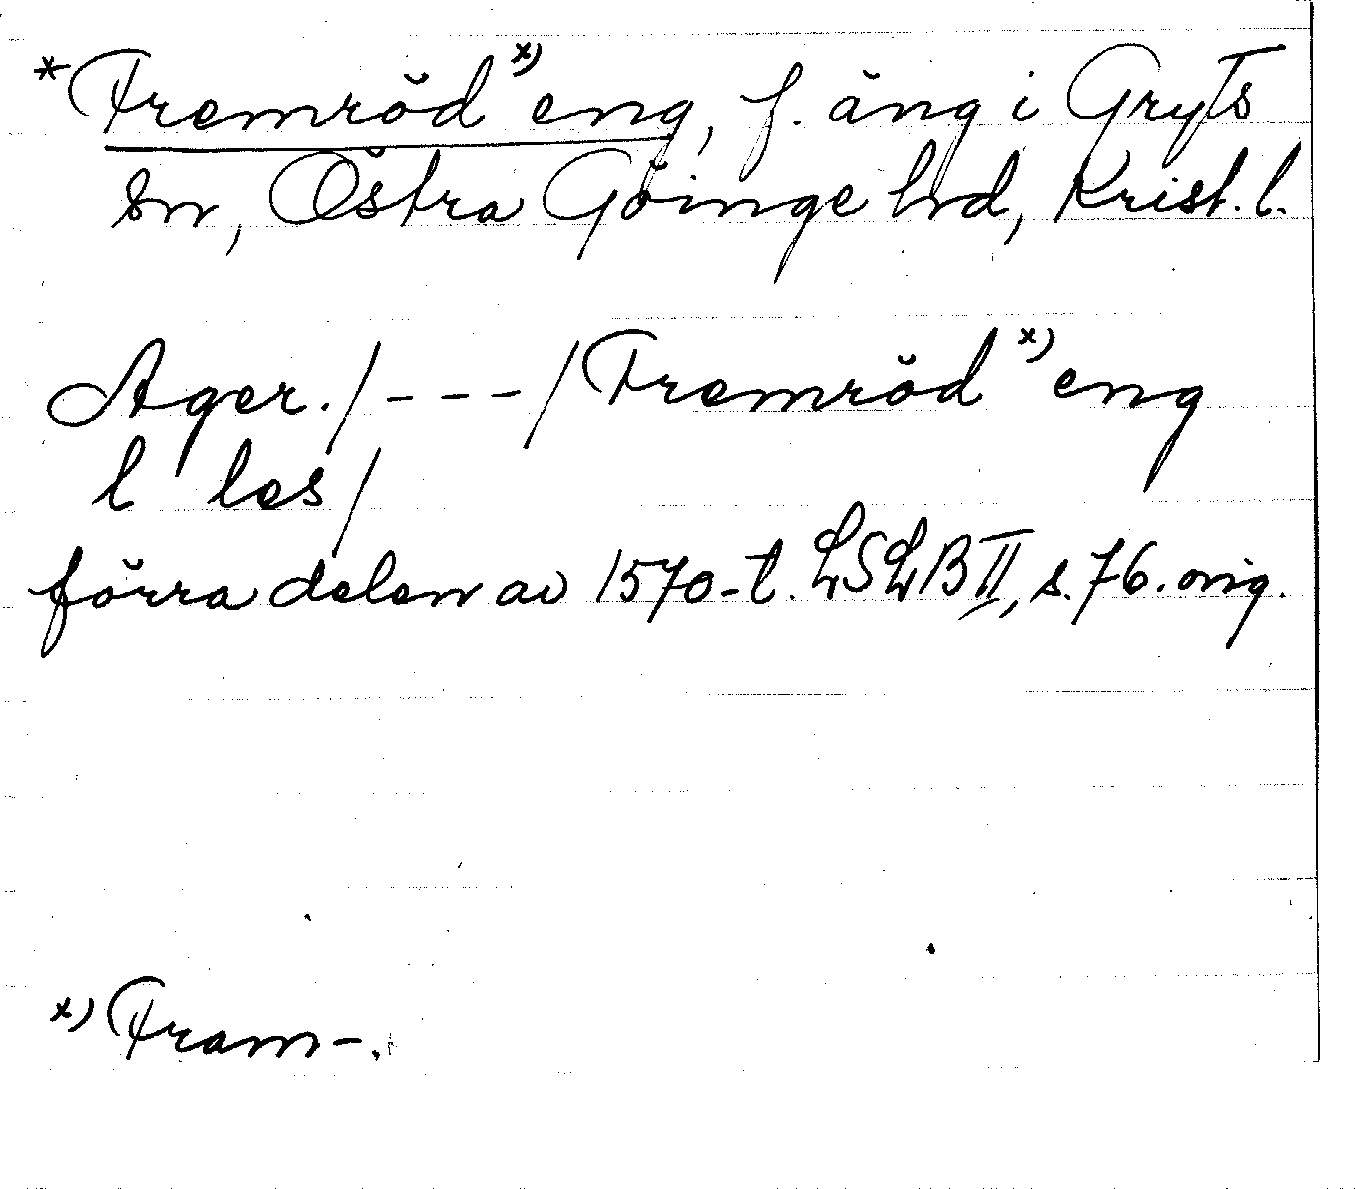 *Fremröd x) eng, f. äng i Gryts
sn, Östra Göinge hd, Krist. l.
Ager. / - - - / Fremröd x) eng
l les /
förra delen av 1570-t. LSLB II, s. 76. orig.
x) Fram-.